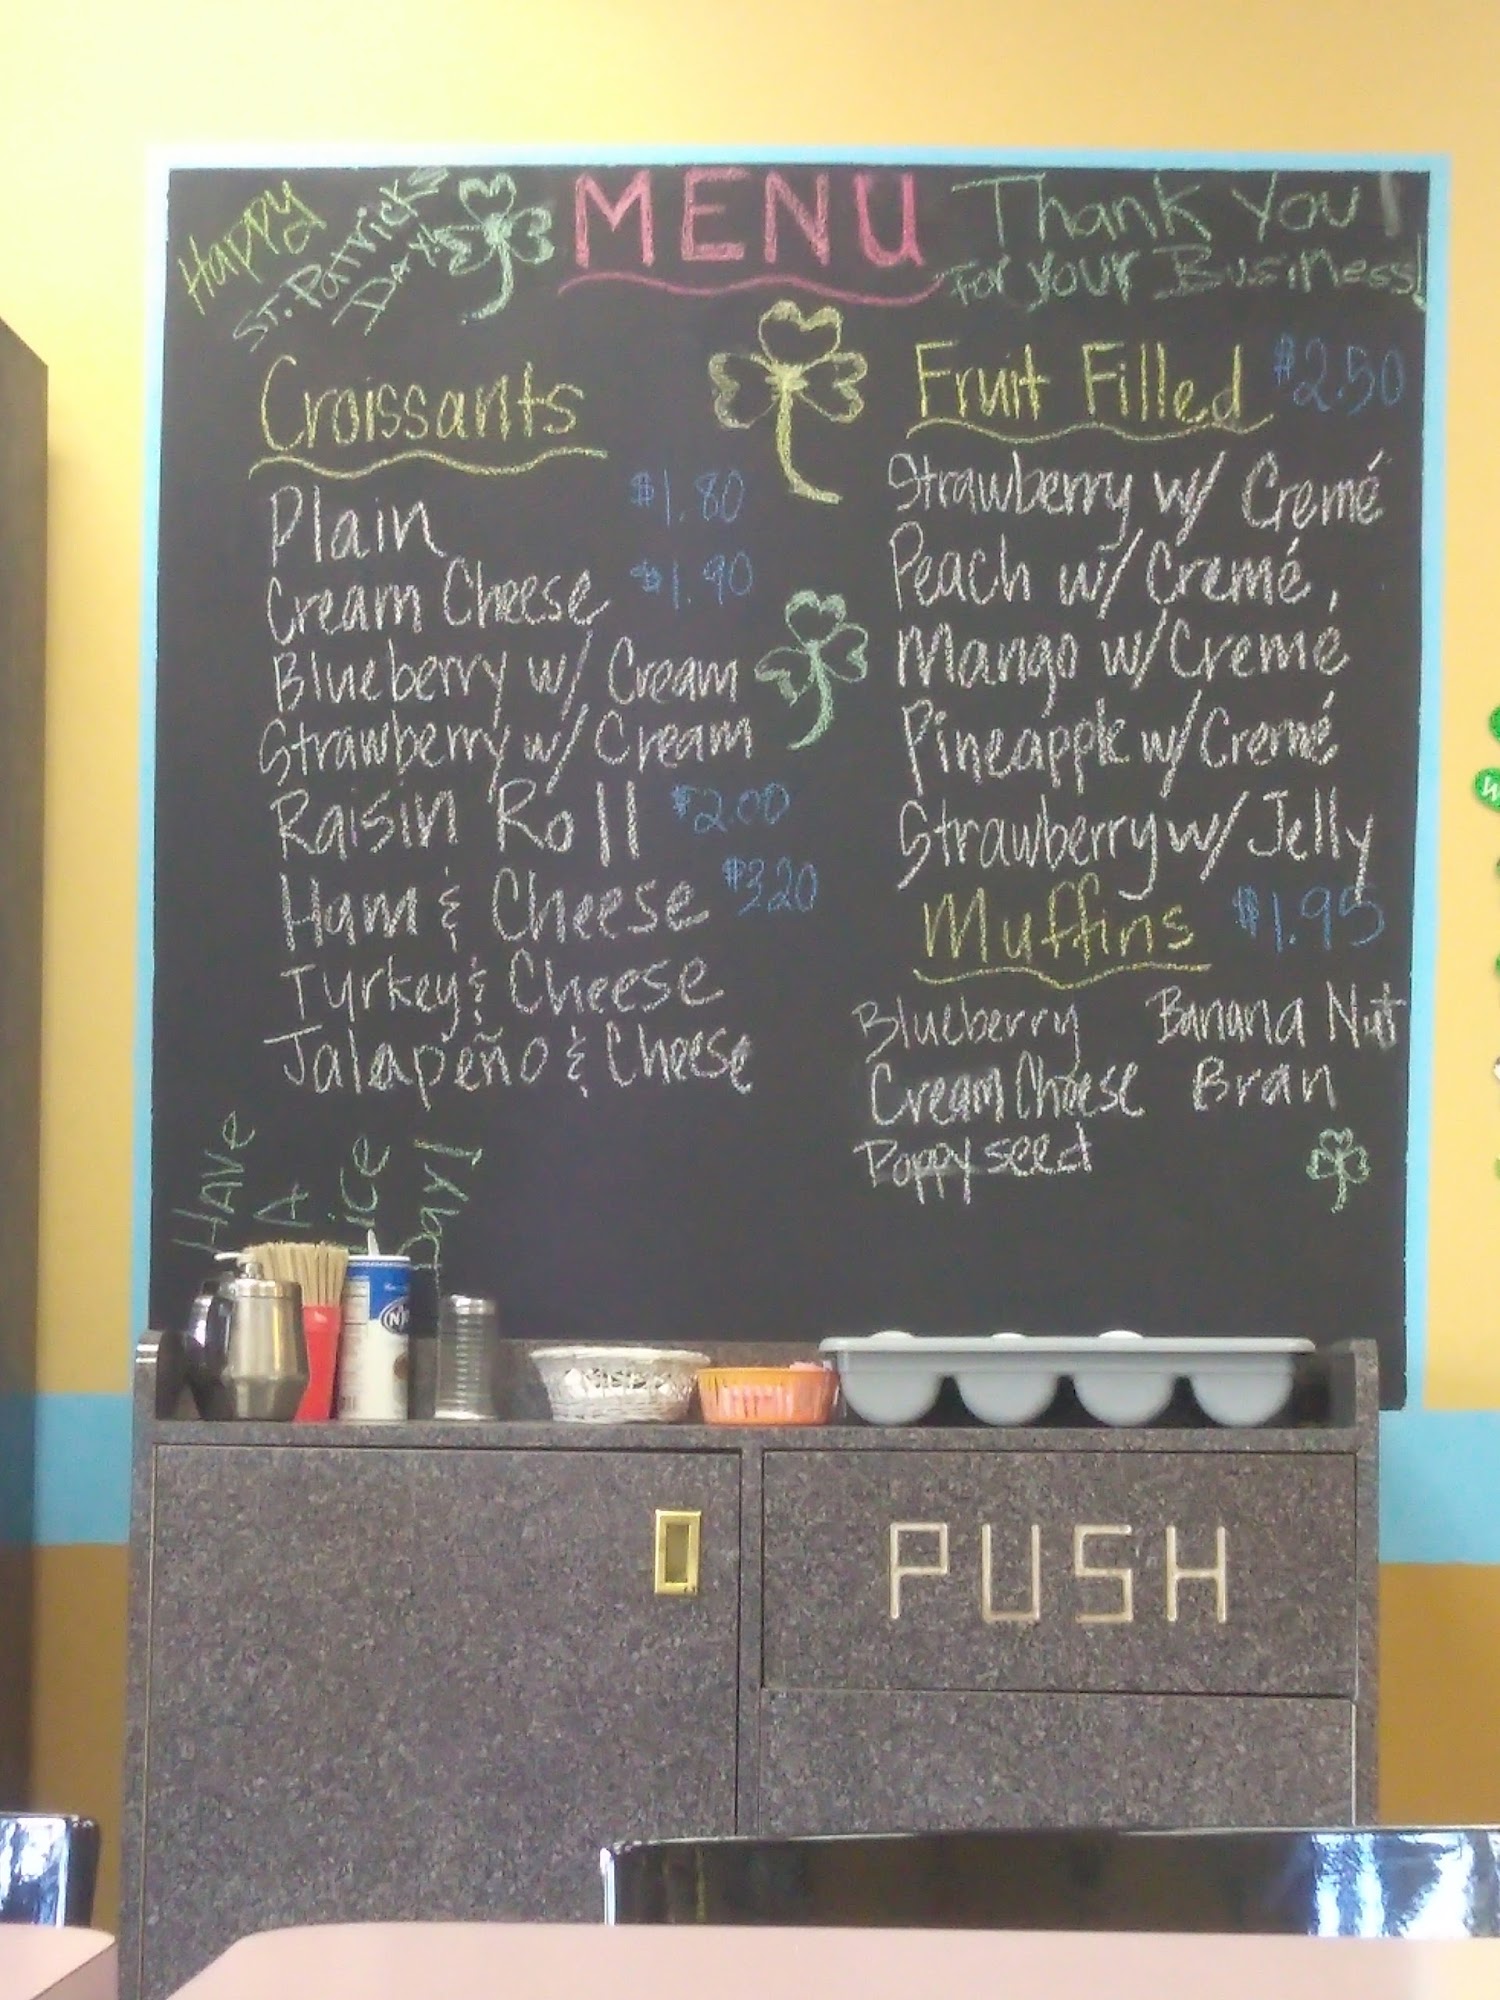 Happy
ST. Patrick's
DAY!
MENU
Thank You!
For Your Business!
Croissants
Plain $1.80
Cream Cheese $1.90
Blueberry w/ Cream
Strawberry w/ Cream
Raisin Roll $2.00
Ham & Cheese $3.20
Turkey & Cheese
Jalapeño & Cheese
Fruit Filled $2.50
Strawberry w/ Cremé
Peach w/ Cremé
Mango w/ Cremé
Pineapple w/ Cremé
Strawberry w/ Jelly
Muffins $1.95
Blueberry Banana Nut
Cream Cheese Bran
Poppy seed
HAVE
A
NICE
DAY!
PUSH